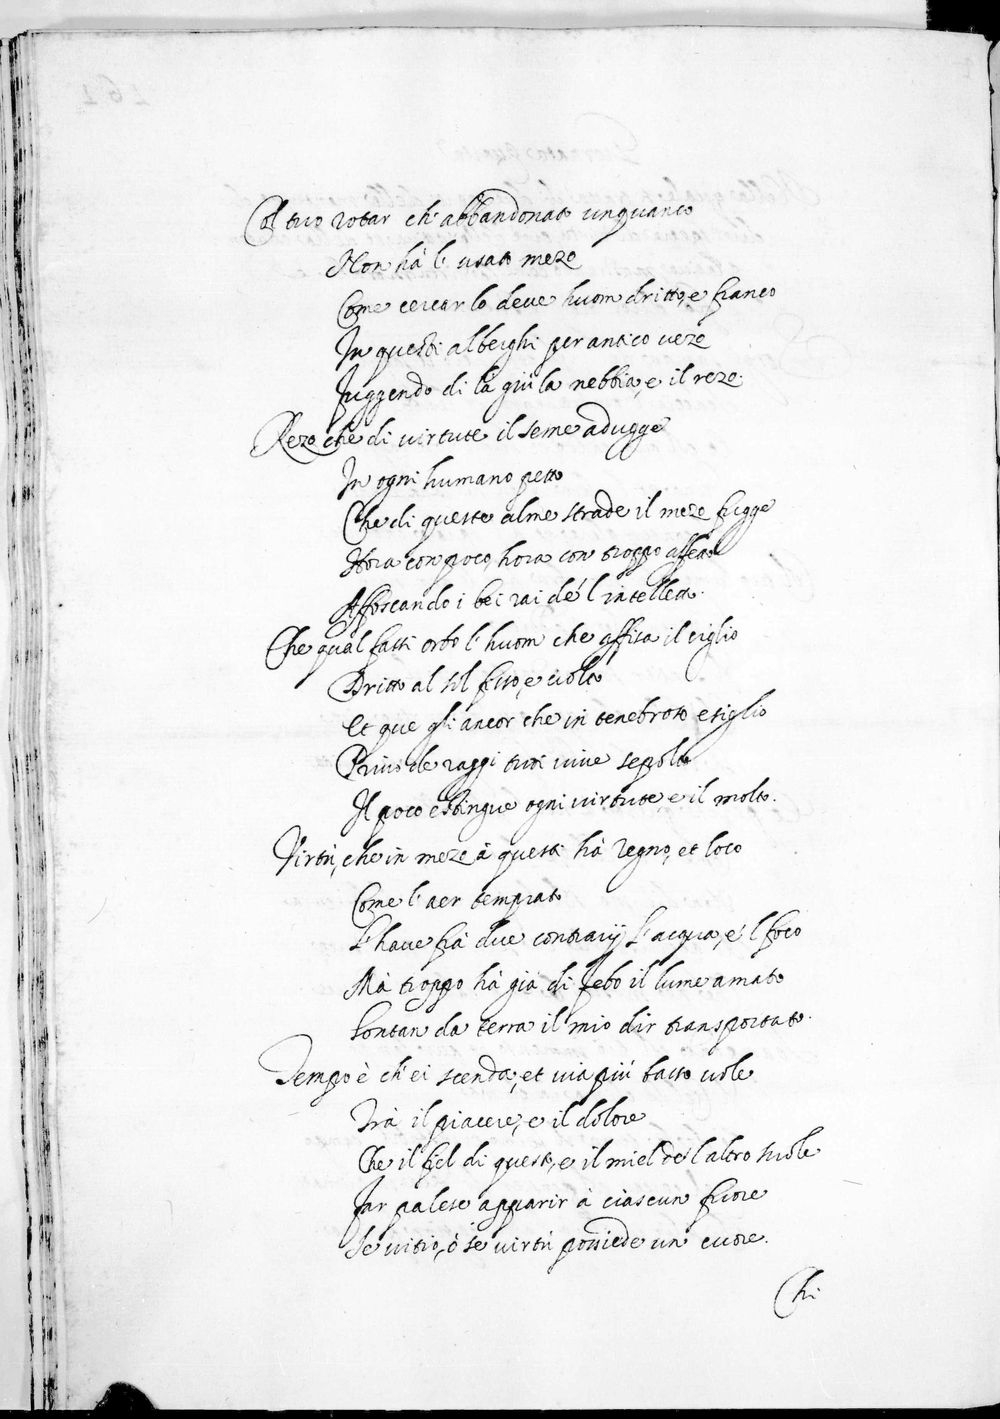 Col tuo rotar ch'abbandonato unquanco
Non hà l'usato meze
Come cercar lo deve huom dritto, e franco
In questi alberghi per antico veze
Fuggendo di là giù la nebbia, e il reze.
Reze che di virtute il seme adugge
In ogni humano petto
Che di queste alme strade il meze fugge
Hora con poco, hora con troppo affetto
Affoscando i bei rai de'l intelletto.
Che qual fassi orbo l'huom che affisa il ciglio
Dritto al sol fisso, e violto
Et que gli ancor che in tenebroso esiglio
Privo de raggi tuoi vive sepolto
Il poco estingue ogni virtute, e il molto.
Virtù, che in meze à questi hà regno, et loco
Come l'aer temprato
L'have frà due contrarij l'acqua, e'l foco
Mà troppo hà già di Febo il lume amato
Lontan da terra il mio dir transportato.
Tempo è ch'ei scenda, et via più basso vole
Trà il piacere, e il dolore
Che il fiel di questo, e il miel de l'altro suole
Far palese apparir à ciascun fuore
Se vitio, ò se virtù possiede un cuore.
Chi